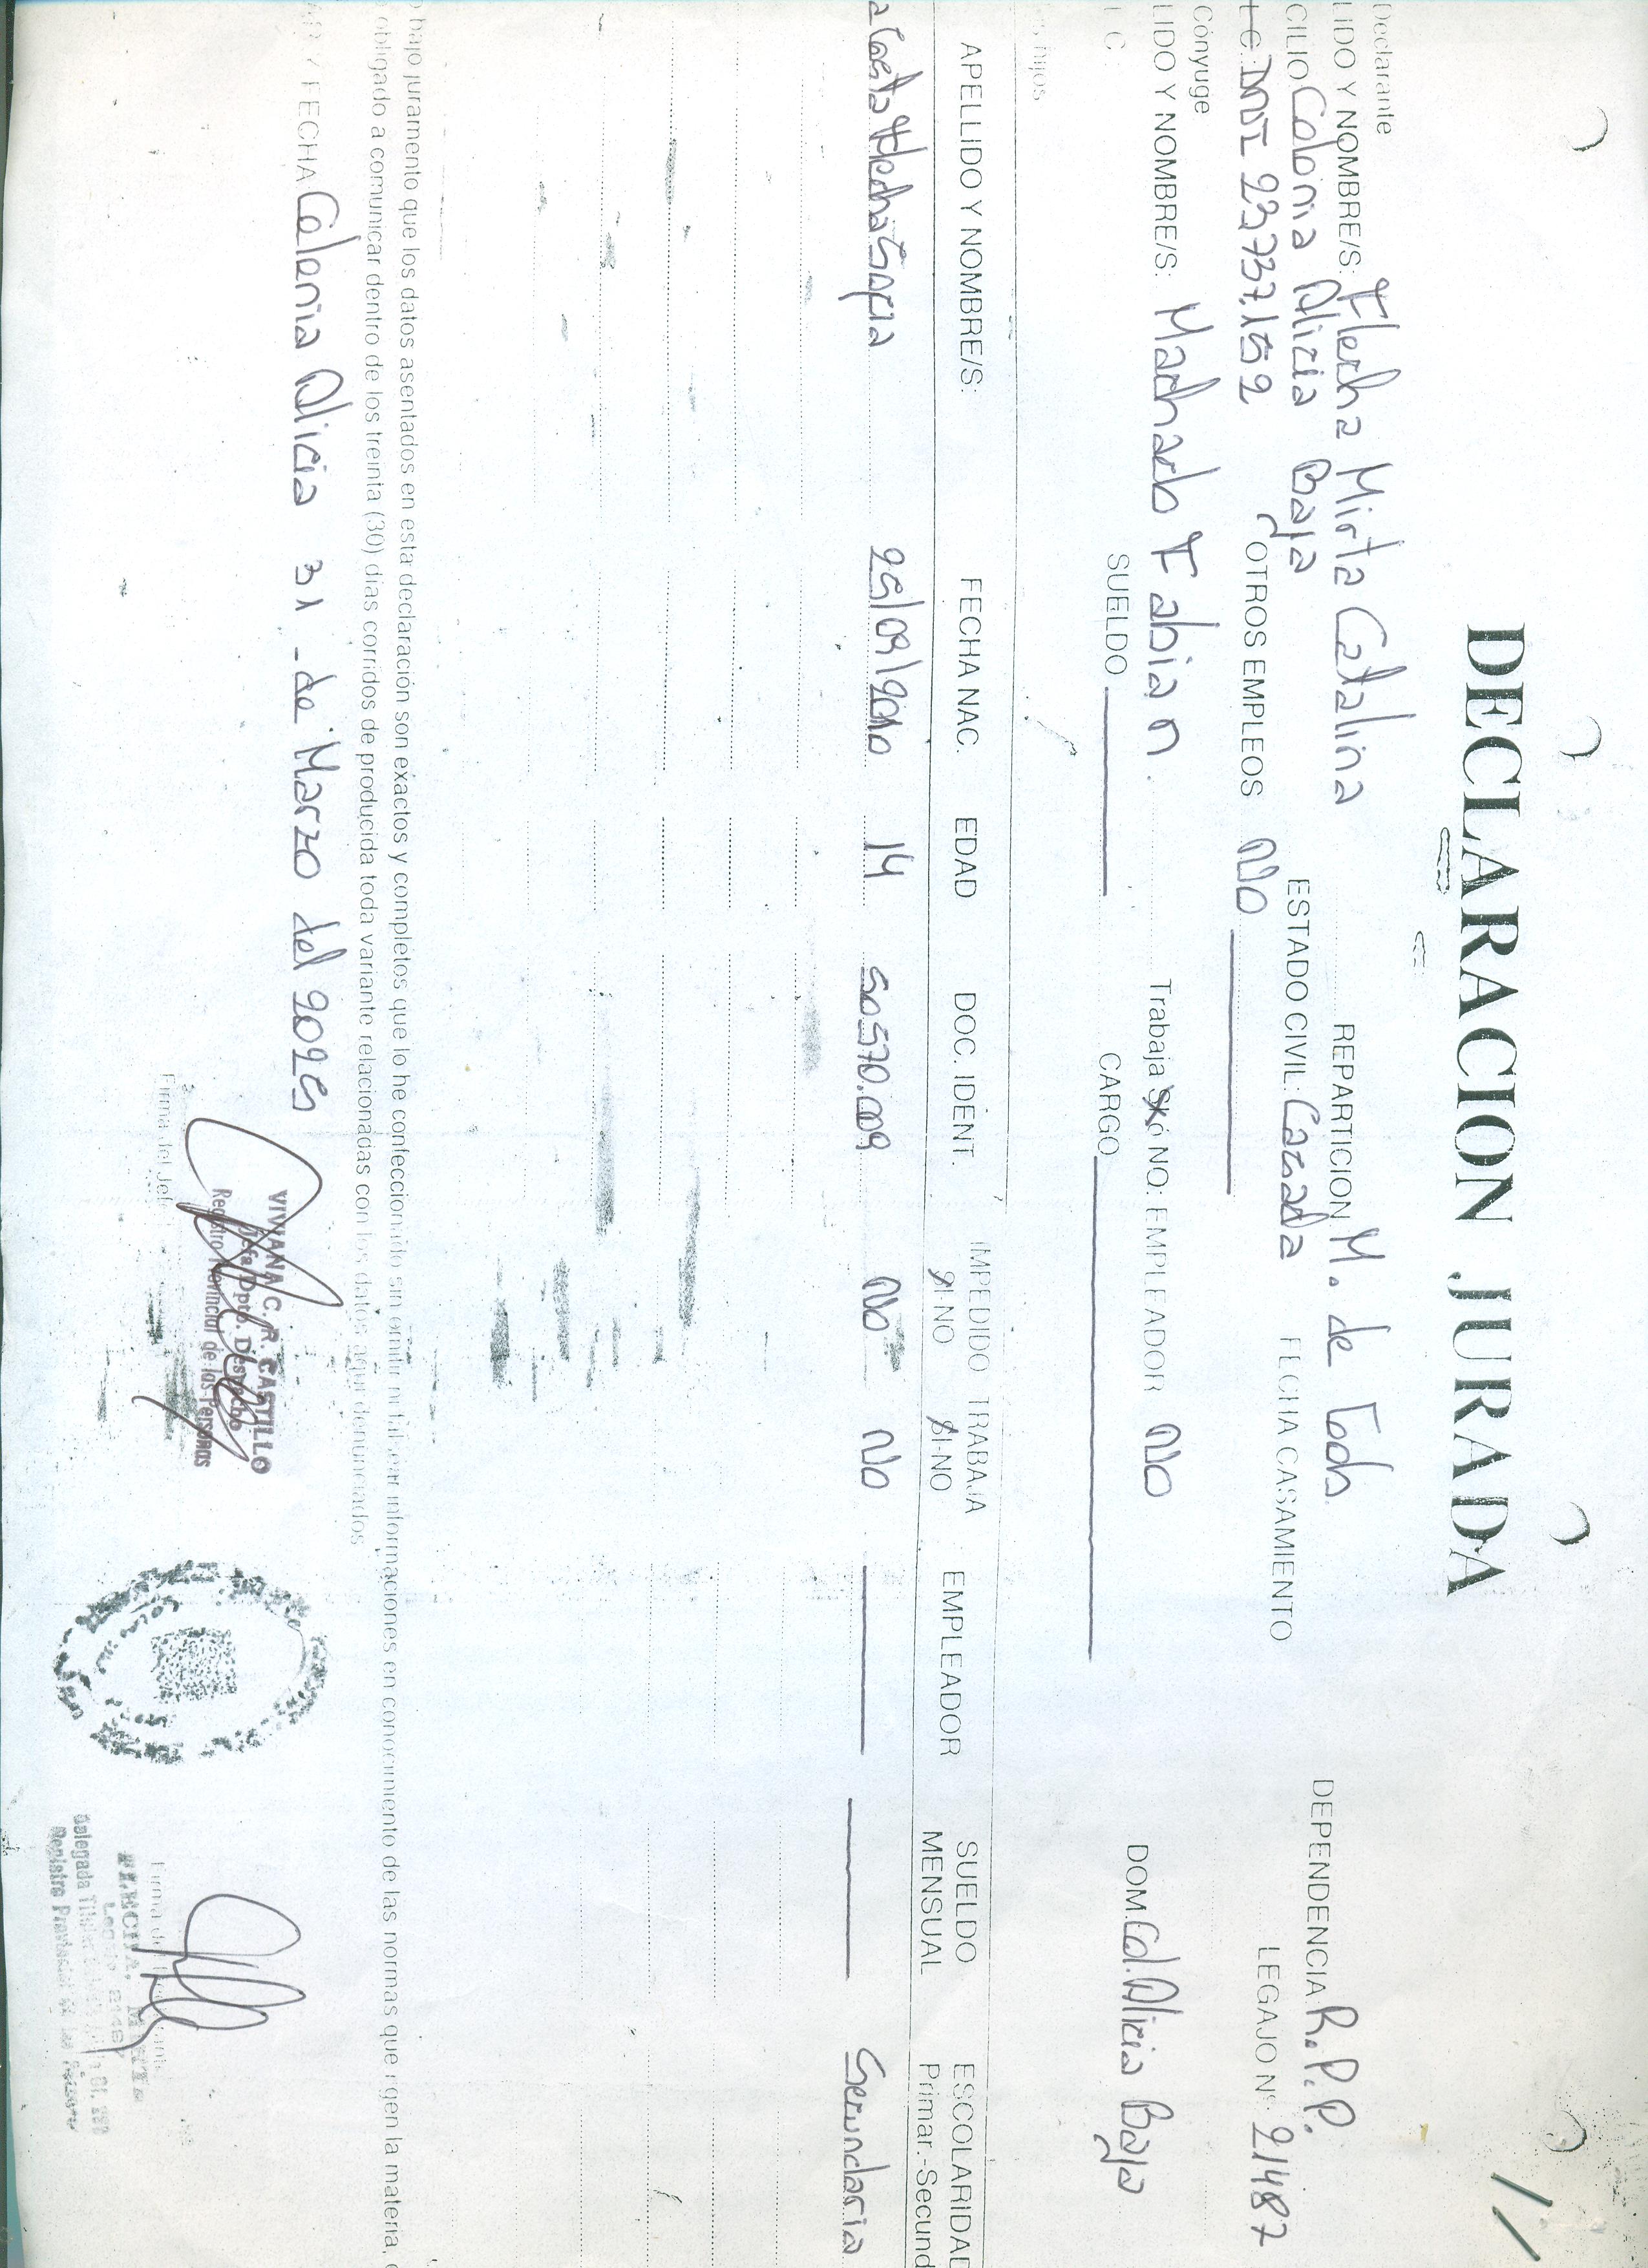 DECLARACION JURADA
Declarante
LIDO Y NOMBRE/S: Flecha Mirta Catalina REPARTICION M. de Gob. DEPENDENCIA R.P.P.
CILIO Colonia Alicia Baja ESTADO CIVIL: Casada FECHA CASAMIENTO LEGAJO Nº: 21487
DNI 23,737,152 OTROS EMPLEOS NO
Cónyuge
LIDO Y NOMBRE/S: Machado Fabian. Trabaja SI ó NO: EMPLEADOR NO DOM. Col. Alicia Baja
C : SUELDO CARGO
s hijos
APELLIDO Y NOMBRE/S: FECHA NAC. EDAD DOC. IDENT. IMPEDIDO SI-NO TRABAJA SI-NO EMPLEADOR SUELDO MENSUAL ESCOLARIDAD Primar.-Secund
Flecha Sofia 14 50570.009 NO NO Secundaria
o bajo juramento que los datos asentados en esta declaración son exactos y completos que lo he confeccionado sin omitir ni falsear informaciones en conocimiento de las normas que rigen la materia,
obligado a comunicar dentro de los treinta (30) días corridos de producida toda variante relacionadas con los datos aquí denunciados
/ FECHA Colonia Alicia 31 - de Marzo del 2025
VIVIANA C. R. CASTILLO
Jefa Dpto. Despacho
Registro Provincial de las Personas
Firma del Jefe
FLECHA, MIRTA
Delegada Titular
Registro Provincial de las